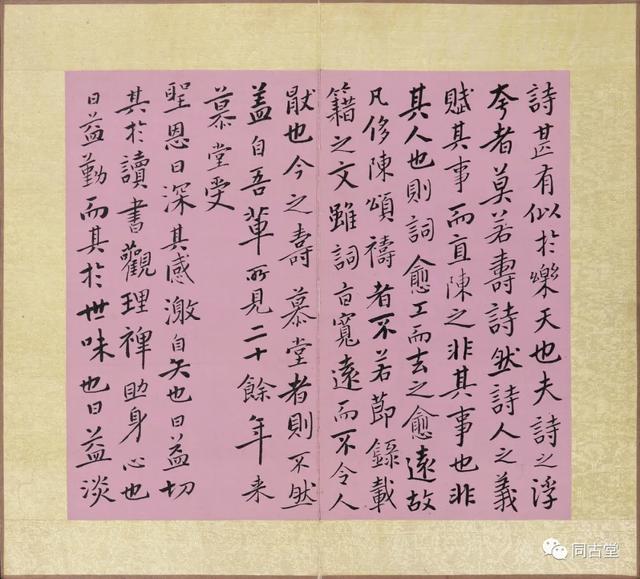 詩甚有似於樂天也夫詩之浮
夸者莫若壽詩然詩人之義
賦其事而直陳之非其事也非
其人也則詞愈工而去之愈遠故
凡侈陳頌禱者不若節錄載
籍之文雖詞旨寬遠而不令人
厭也今之壽慕堂者則不然
盖自吾輩所見二十餘年来
慕堂受
聖恩日深其感激自矢也日益切
其於讀書觀理禆助身心也
日益勤而其於世味也日益淡
同古堂